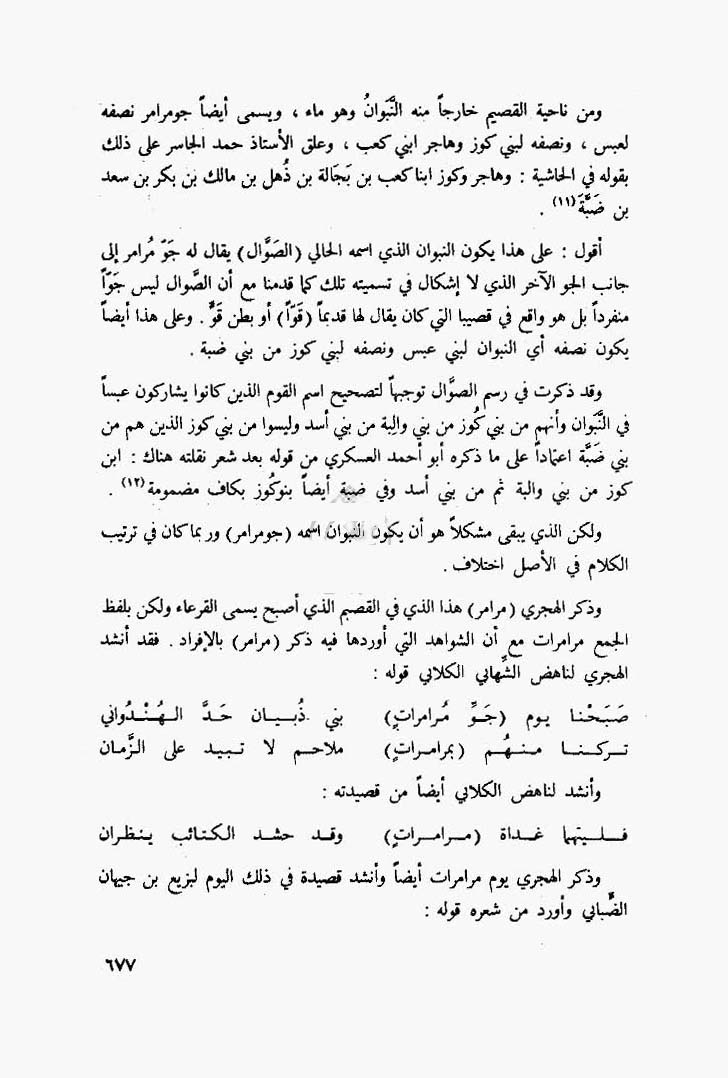 ومن ناحية القصيم خارجاً منه النَّبَوانُ وهو ماء ، ويسمى أيضاً جومرامر نصفه
لعبس ، ونصفه لبني كوز وهاجر ابني كعب ، وعلق الأستاذ حمد الجاسر على ذلك
بقوله في الحاشية : وهاجر وكوز ابنا كعب بن بَجَالة بن ذُهل بن مالك بن بكر بن سعد
بن ضَبَّةَ(١١) .
أقول : على هذا يكون النبوان الذي اسمه الحالي (الصَوَّال) يقال له جَوّ مُرامر إلى
جانب الجو الآخر الذي لا إشكال في تسميته تلك كما قدمنا مع أن الصَّوال ليس جَوّاً
منفرداً بل هو واقع في قصيبا التي كان يقال لها قديماً (قَوّاً) أو بطن قَوٍّ . وعلى هذا أيضاً
يكون نصفه أي النبوان لبني عبس ونصفه لبني كوز من بني ضبة .
وقد ذكرت في رسم الصوَّال توجيهاً لتصحيح اسم القوم الذين كانوا يشاركون عبساً
في النَّبَوان وأنهم من بني كُوز من بني والِبة من بني أسد وليسوا من بني كوز الذين هم من
بني ضَبَّة اعتماداً على ما ذكره أبو أحمد العسكري من قوله بعد شعر نقلته هناك : ابن
كوز من بني والبة ثم من بني أسد وفي ضبة أيضاً بنوكُوز بكاف مضمومة(١٢) .
ولكن الذي يبقى مشكلاً هو أن يكون النبوان اسمه (جومرامر) وربما كان في ترتيب
الكلام في الأصل اختلاف .
وذكر الهجري (مرامر) هذا الذي في القصيم الذي أصبح يسمى القرعاء ولكن بلفظ
الجمع مرامرات مع أن الشواهد التي أوردها فيه ذكر (مرامر) بالإفراد . فقد أنشد
الهجري لناهض الشِّهابي الكلابي قوله :
صَبَحْنا يوم (جَوِّ مُرامراتٍ) بني ذُبيان حَدَّ الهُنْدُواني
تركنا منهُم (بمرامراتٍ) ملاحم لا تبيد على الزَّمان
وأنشد لناهض الكلابي أيضاً من قصيدته :
فليتهما غداة (مرامراتٍ) وقد حشد الكتائب ينظران
وذكر الهجري يوم مرامرات أيضاً وأنشد قصيدة في ذلك اليوم لبزيع بن جيهان
الضّبابي وأورد من شعره قوله :
٦٧٧